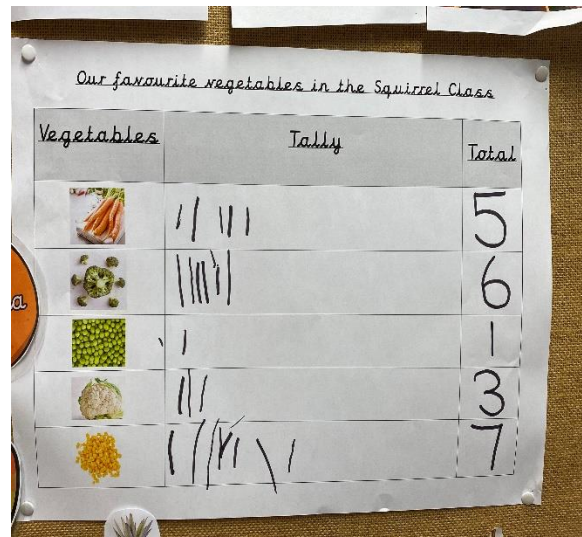 Our favourite vegetables in the Squirrel Class
Vegetables Tally Total
5
6
1
3
7
a